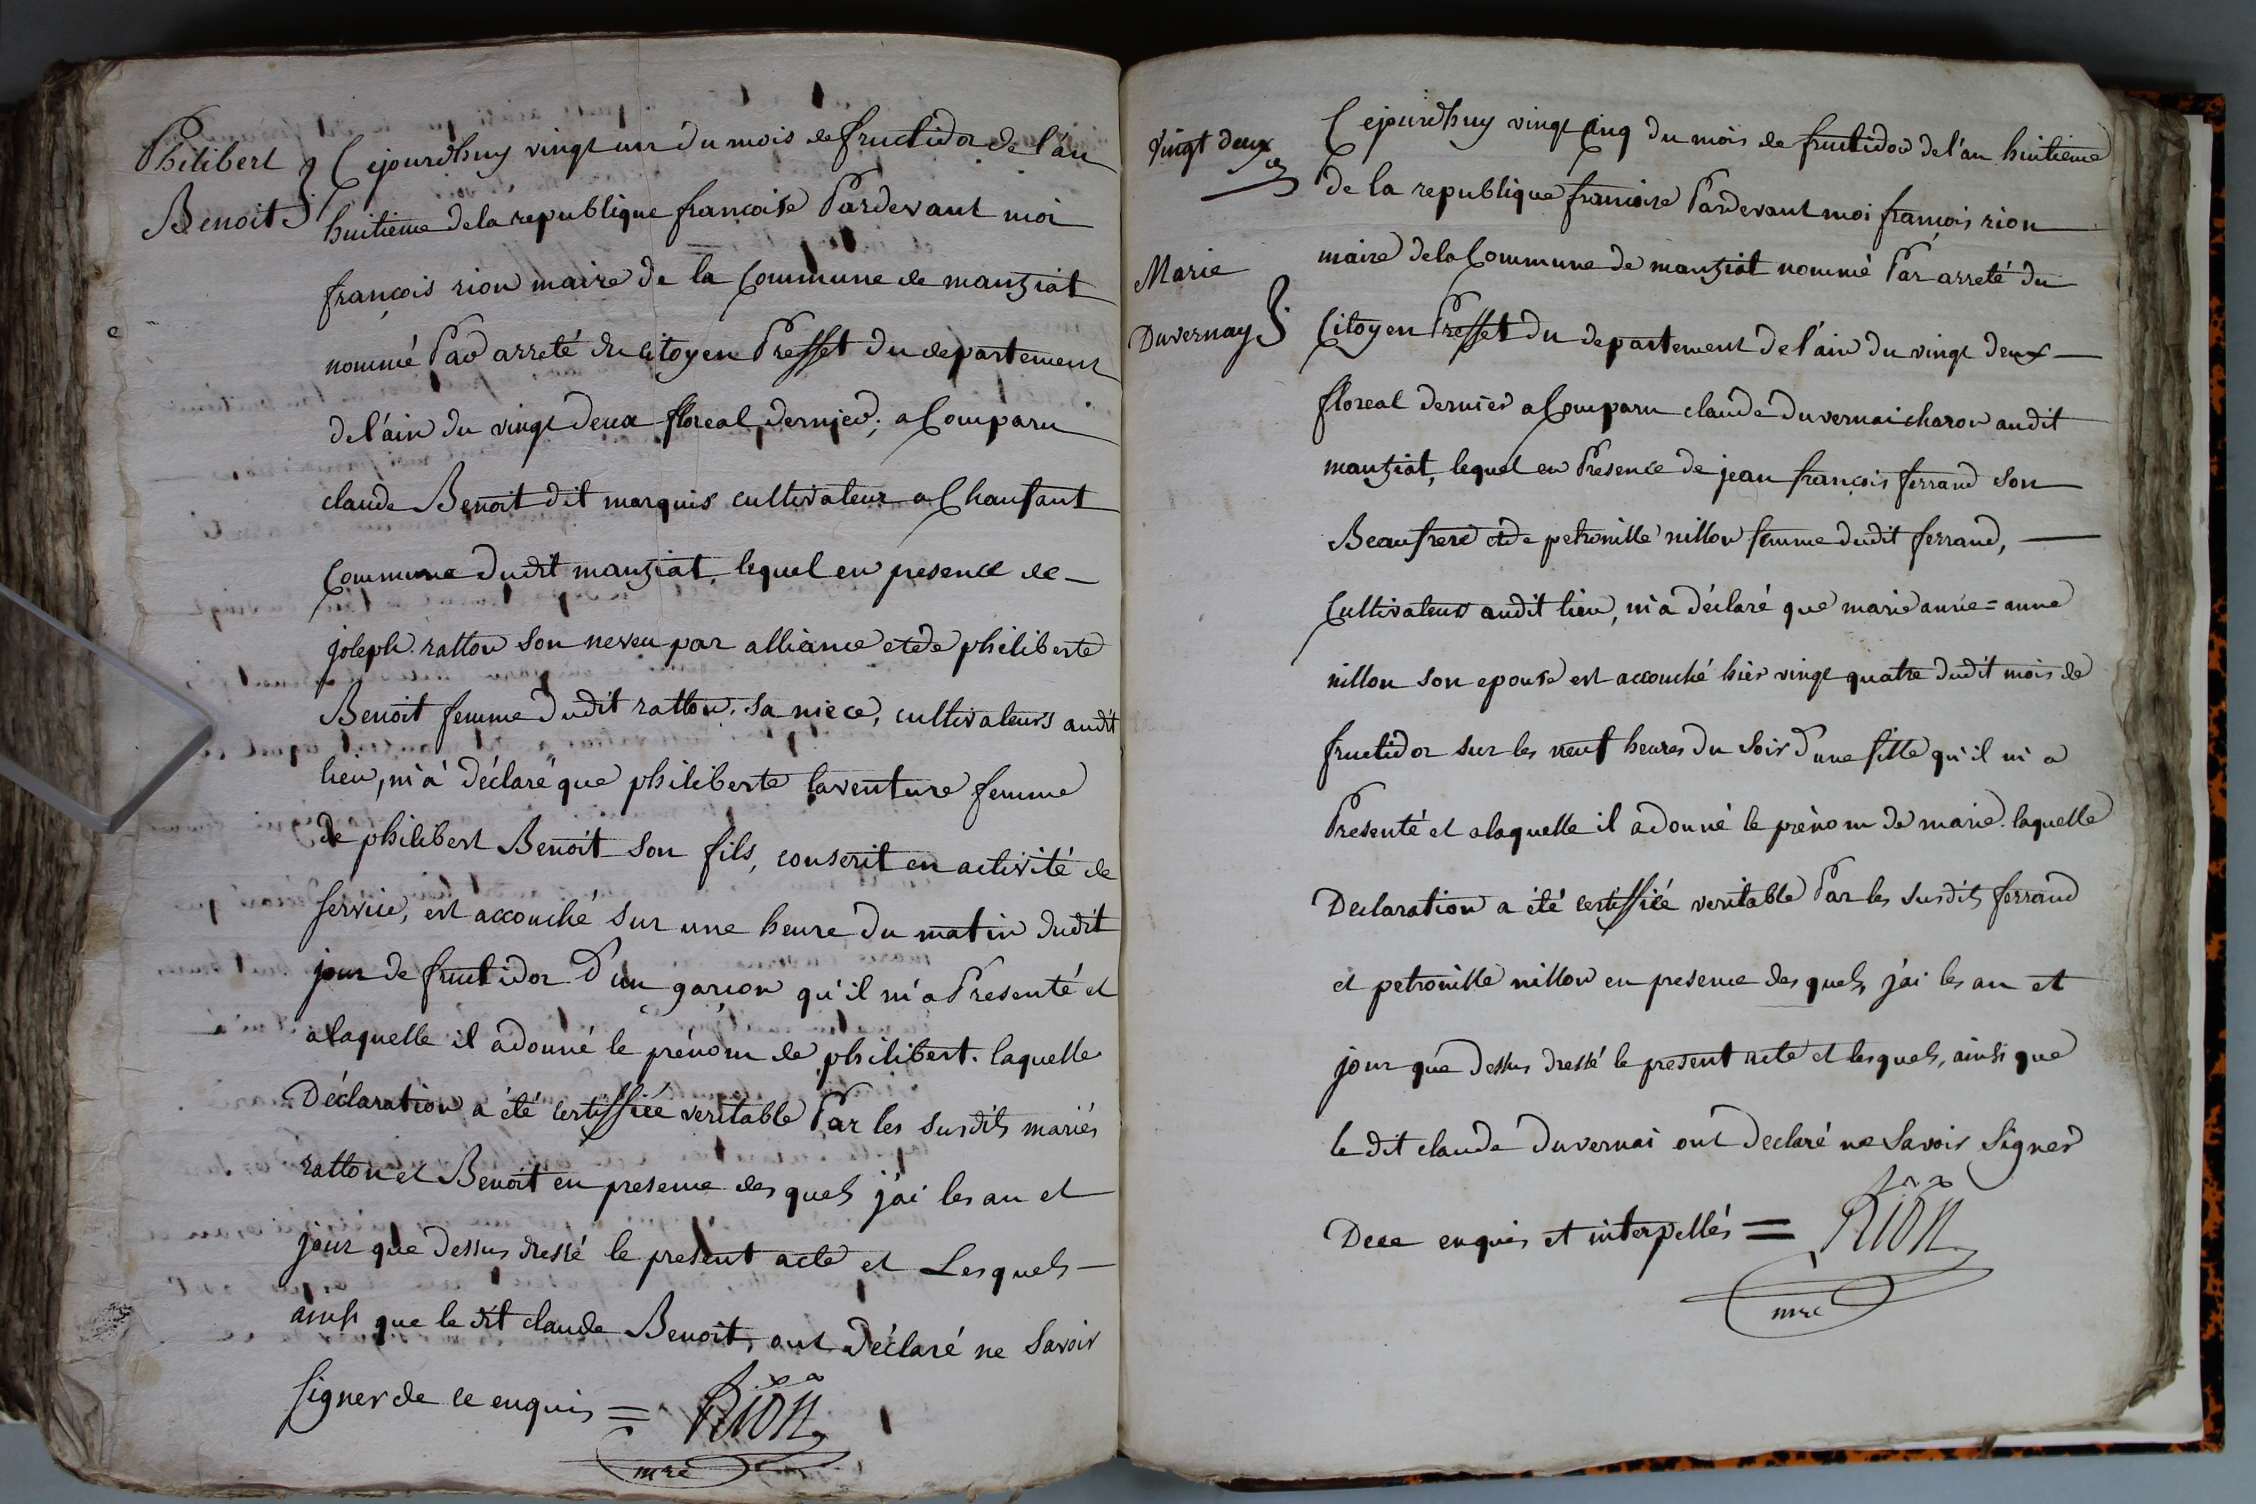 Philibert
Benoit
Cejourdhuy vingt un du mois de fructidor de l'an
huitieme de la republique francoise Pardevant moi
françois rion maire de la Commune de manziat
nommé Par arreté du citoyen Presset du departement
de l'ain du vingt deux floreal dernier, a Comparu
claude Benoit dit marquis cultivateur a Chanfant
Commune dudit manziat, lequel en presence de
joseph ratton son neveu par alliance et de philiberte
Benoit femme dudit ratton, sa niece, cultivateurs audit
lieu, m'a déclaré que philiberte laventure femme
de philibert Benoit son fils, conscrit en activité de
service, est accouché sur une heure du matin dudit
jour de fructidor D'un garçon qu'il m'a Presenté et
alaquelle il adonné le prénom de philibert. laquelle
Déclaration a été certiffiée veritable Par les susdits mariés
ratton et Benoit en presence des quels j'ai les an et
jour que dessus dressé le present acte et Lesquels
ainsi que le dit claude Benoit, ont déclaré ne Savoir
Signer de ce enquis = Rion
mre
vingt deux
Marie
Duvernay
Cejourdhuy vingt Cinq du mois de fructidor de l'an huitieme
de la republique francoise Pardevant moi françois rion
maire de la Commune de manziat nommé Par arreté du
Citoyen Presset du departement de l'ain du vingt deux
floreal dernier a Comparu claude duvernai charon audit
manziat, lequel en Presence de jean françois ferrand son
Beaufrere et de petronille nillon femme dudit ferrand,
Cultivateurs audit lieu, m'a déclaré que marie anne = anne
nillon son epouse est accouché hier vingt quatre dudit mois de
fructidor sur les neuf heures du Soir d'une fille qu'il m'a
Presenté et alaquelle il adonné le prénom de marie. laquelle
Declaration a été certiffiée veritable Par les susdits ferrand
et petronille nillon en presence des quels, j'ai les an et
jour que dessus dressé le present acte et lesquels, ainsi que
le dit claude duvernai ont declaré ne Savoir Signer
Dece enquis et interpellés = Rion
mre